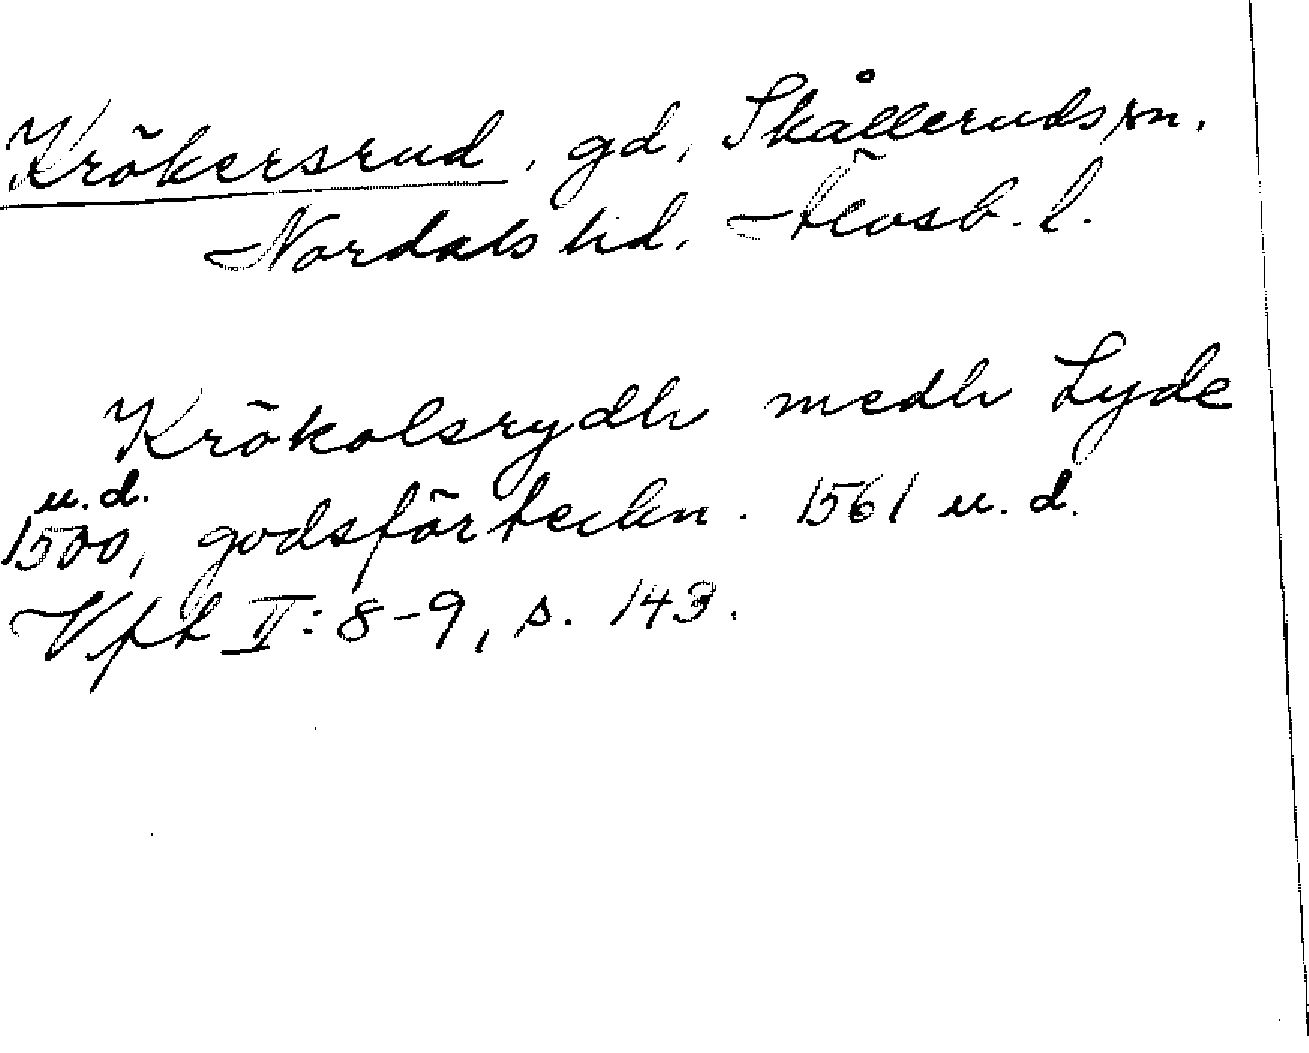 Krökersrud, gd, Skålleruds sn.
Nordals hd. Älvsb. l.
Krökolsrydh medh Lyde
u. d.
1500, godsförteckn. 1561 u. d.
Vft II: 8-9, s. 143.